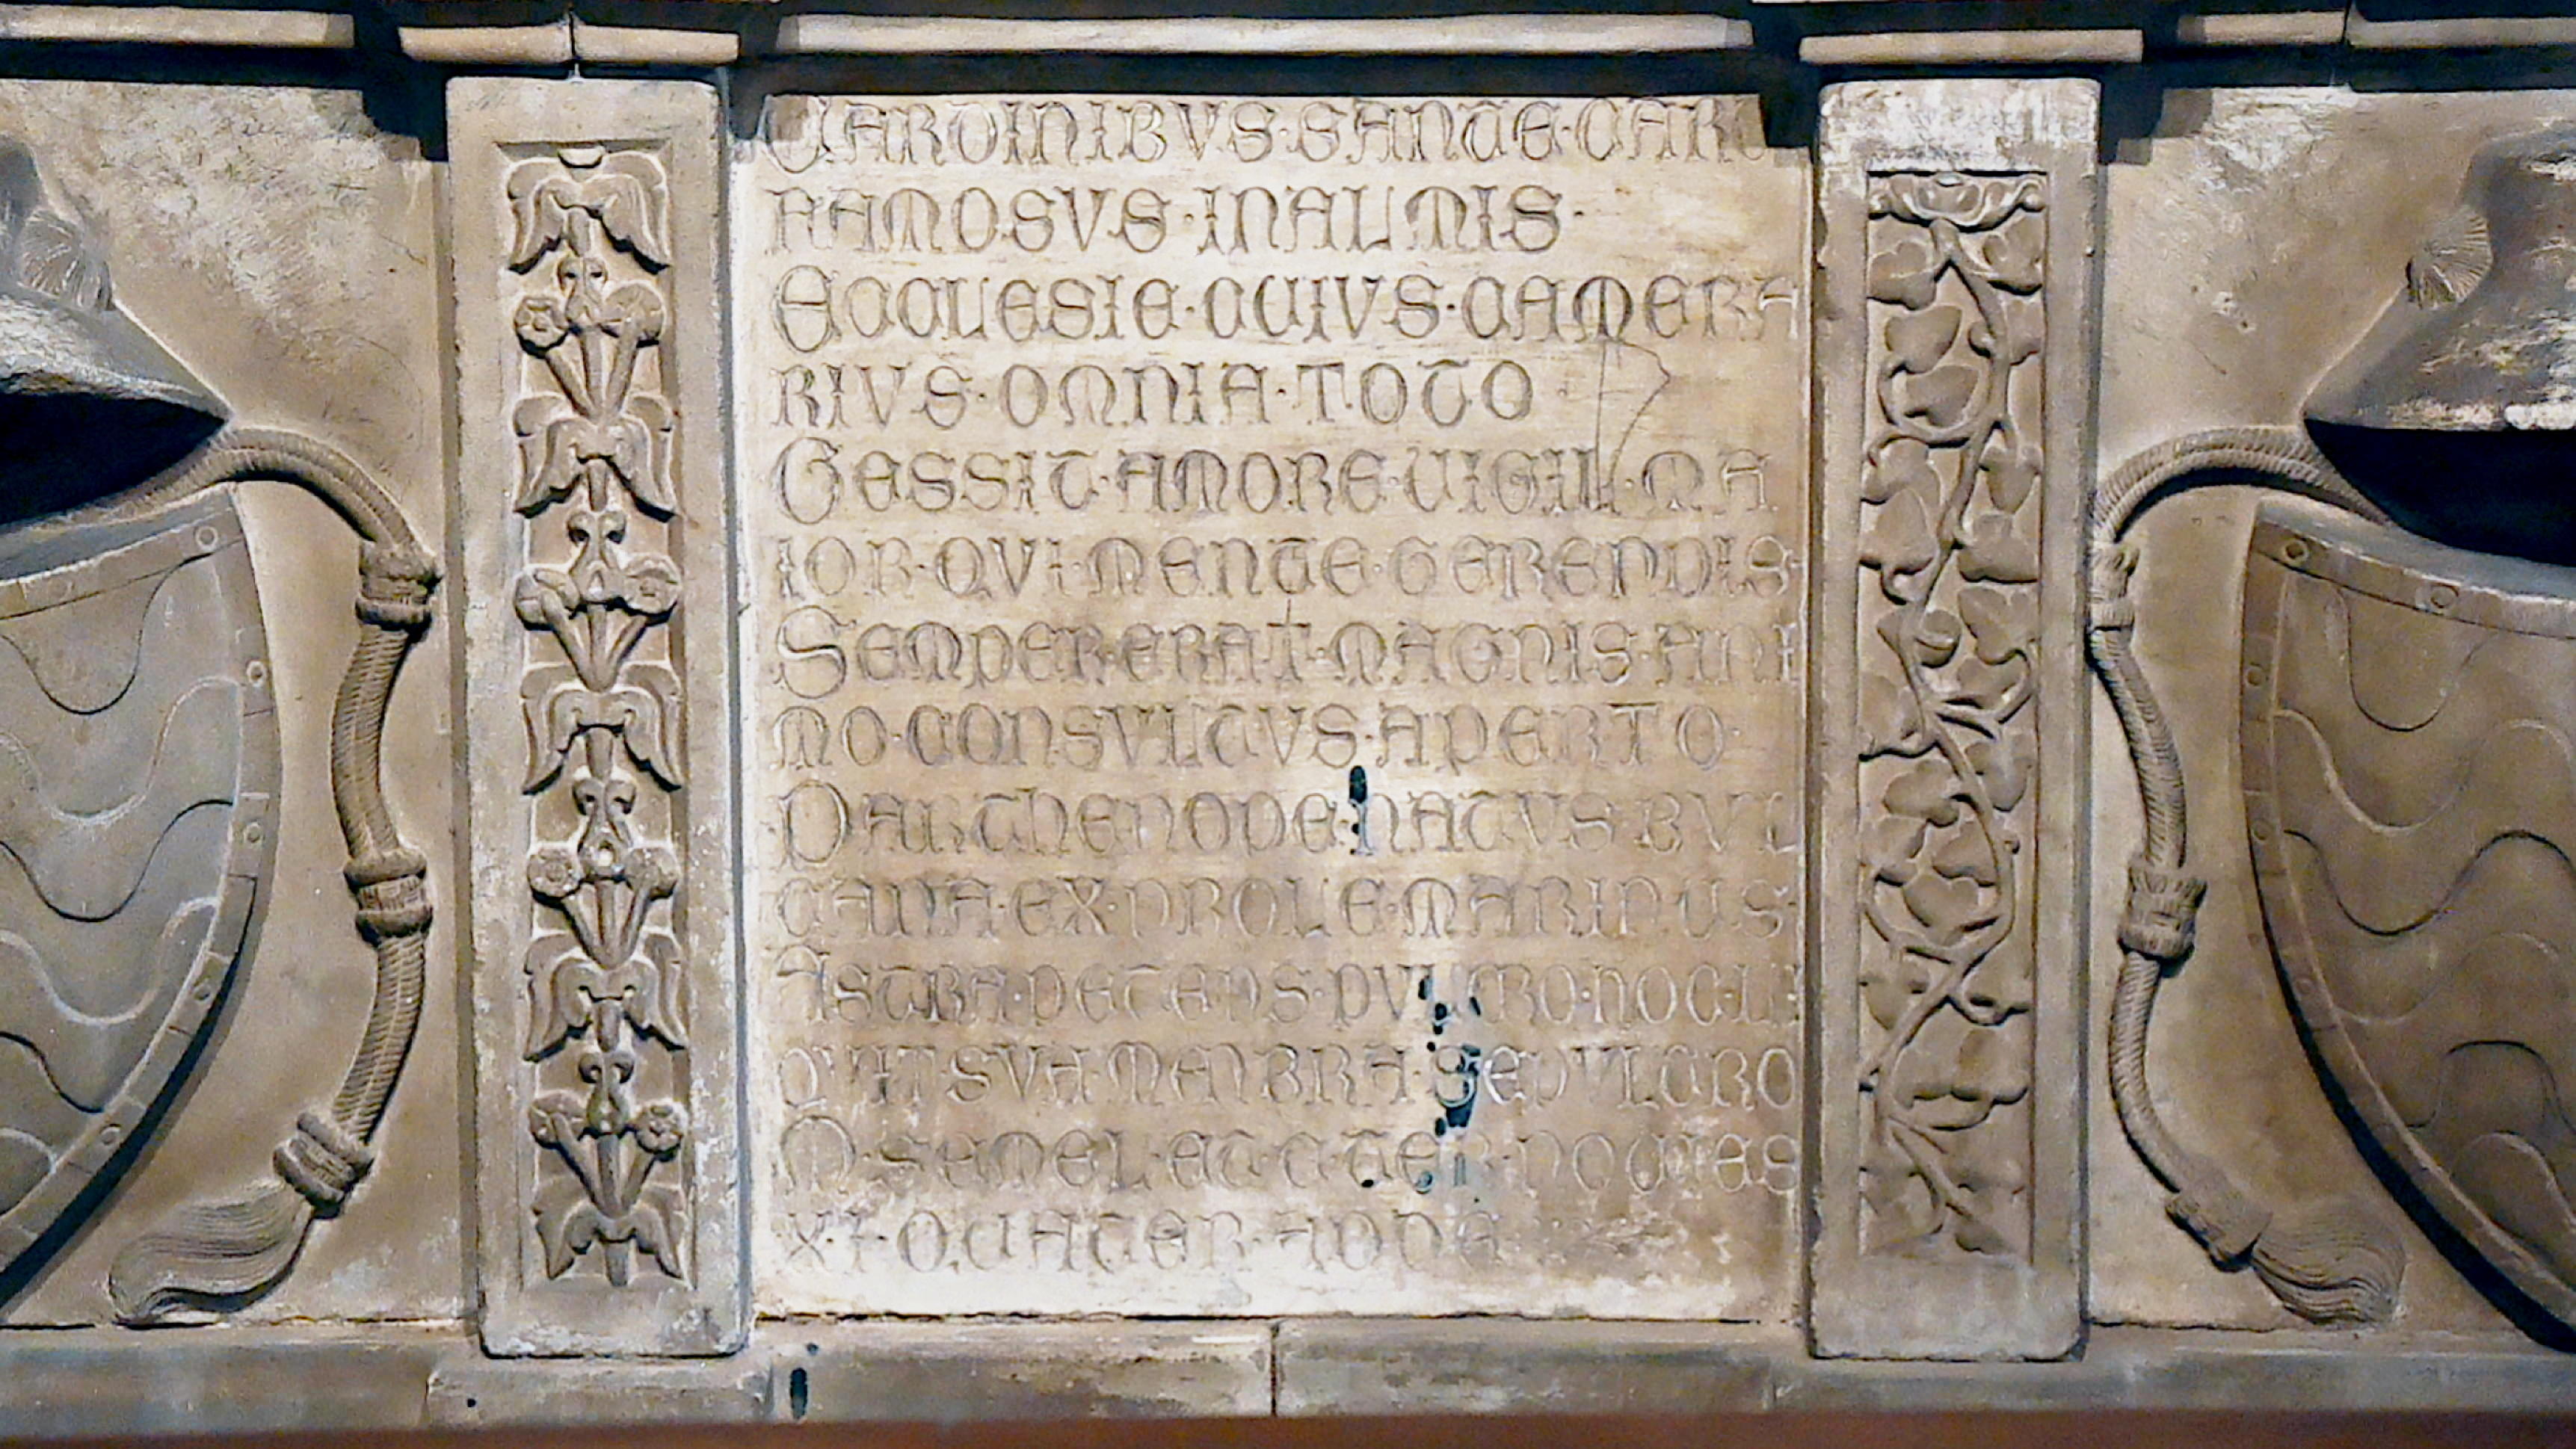 CARDINIBVS·SANTE·CARD
FAMOSVS·IN ALMIS·
ECCLESIE·CUIVS·CAMERA
RIVS·OMNIA·TOTO
GESSIT·AMORE·VIGIL·MA
IOR·QVI·MENTE·GERENDIS·
SEMPER·ERAT·MAGNIS·ANI
MO·CONSVLTVS·APERTO·
PARTHENOPE·NATVS·BVL
CANA·EX·PROLE·MARINUS·
ASTRA·PETENS·PULCRO·HOC·LI
QVIT·SVA·MENBRA·SEPVLCRO
M·SEMEL·ET·C·TER·NOUIES
X·I·QUATER·ADDE